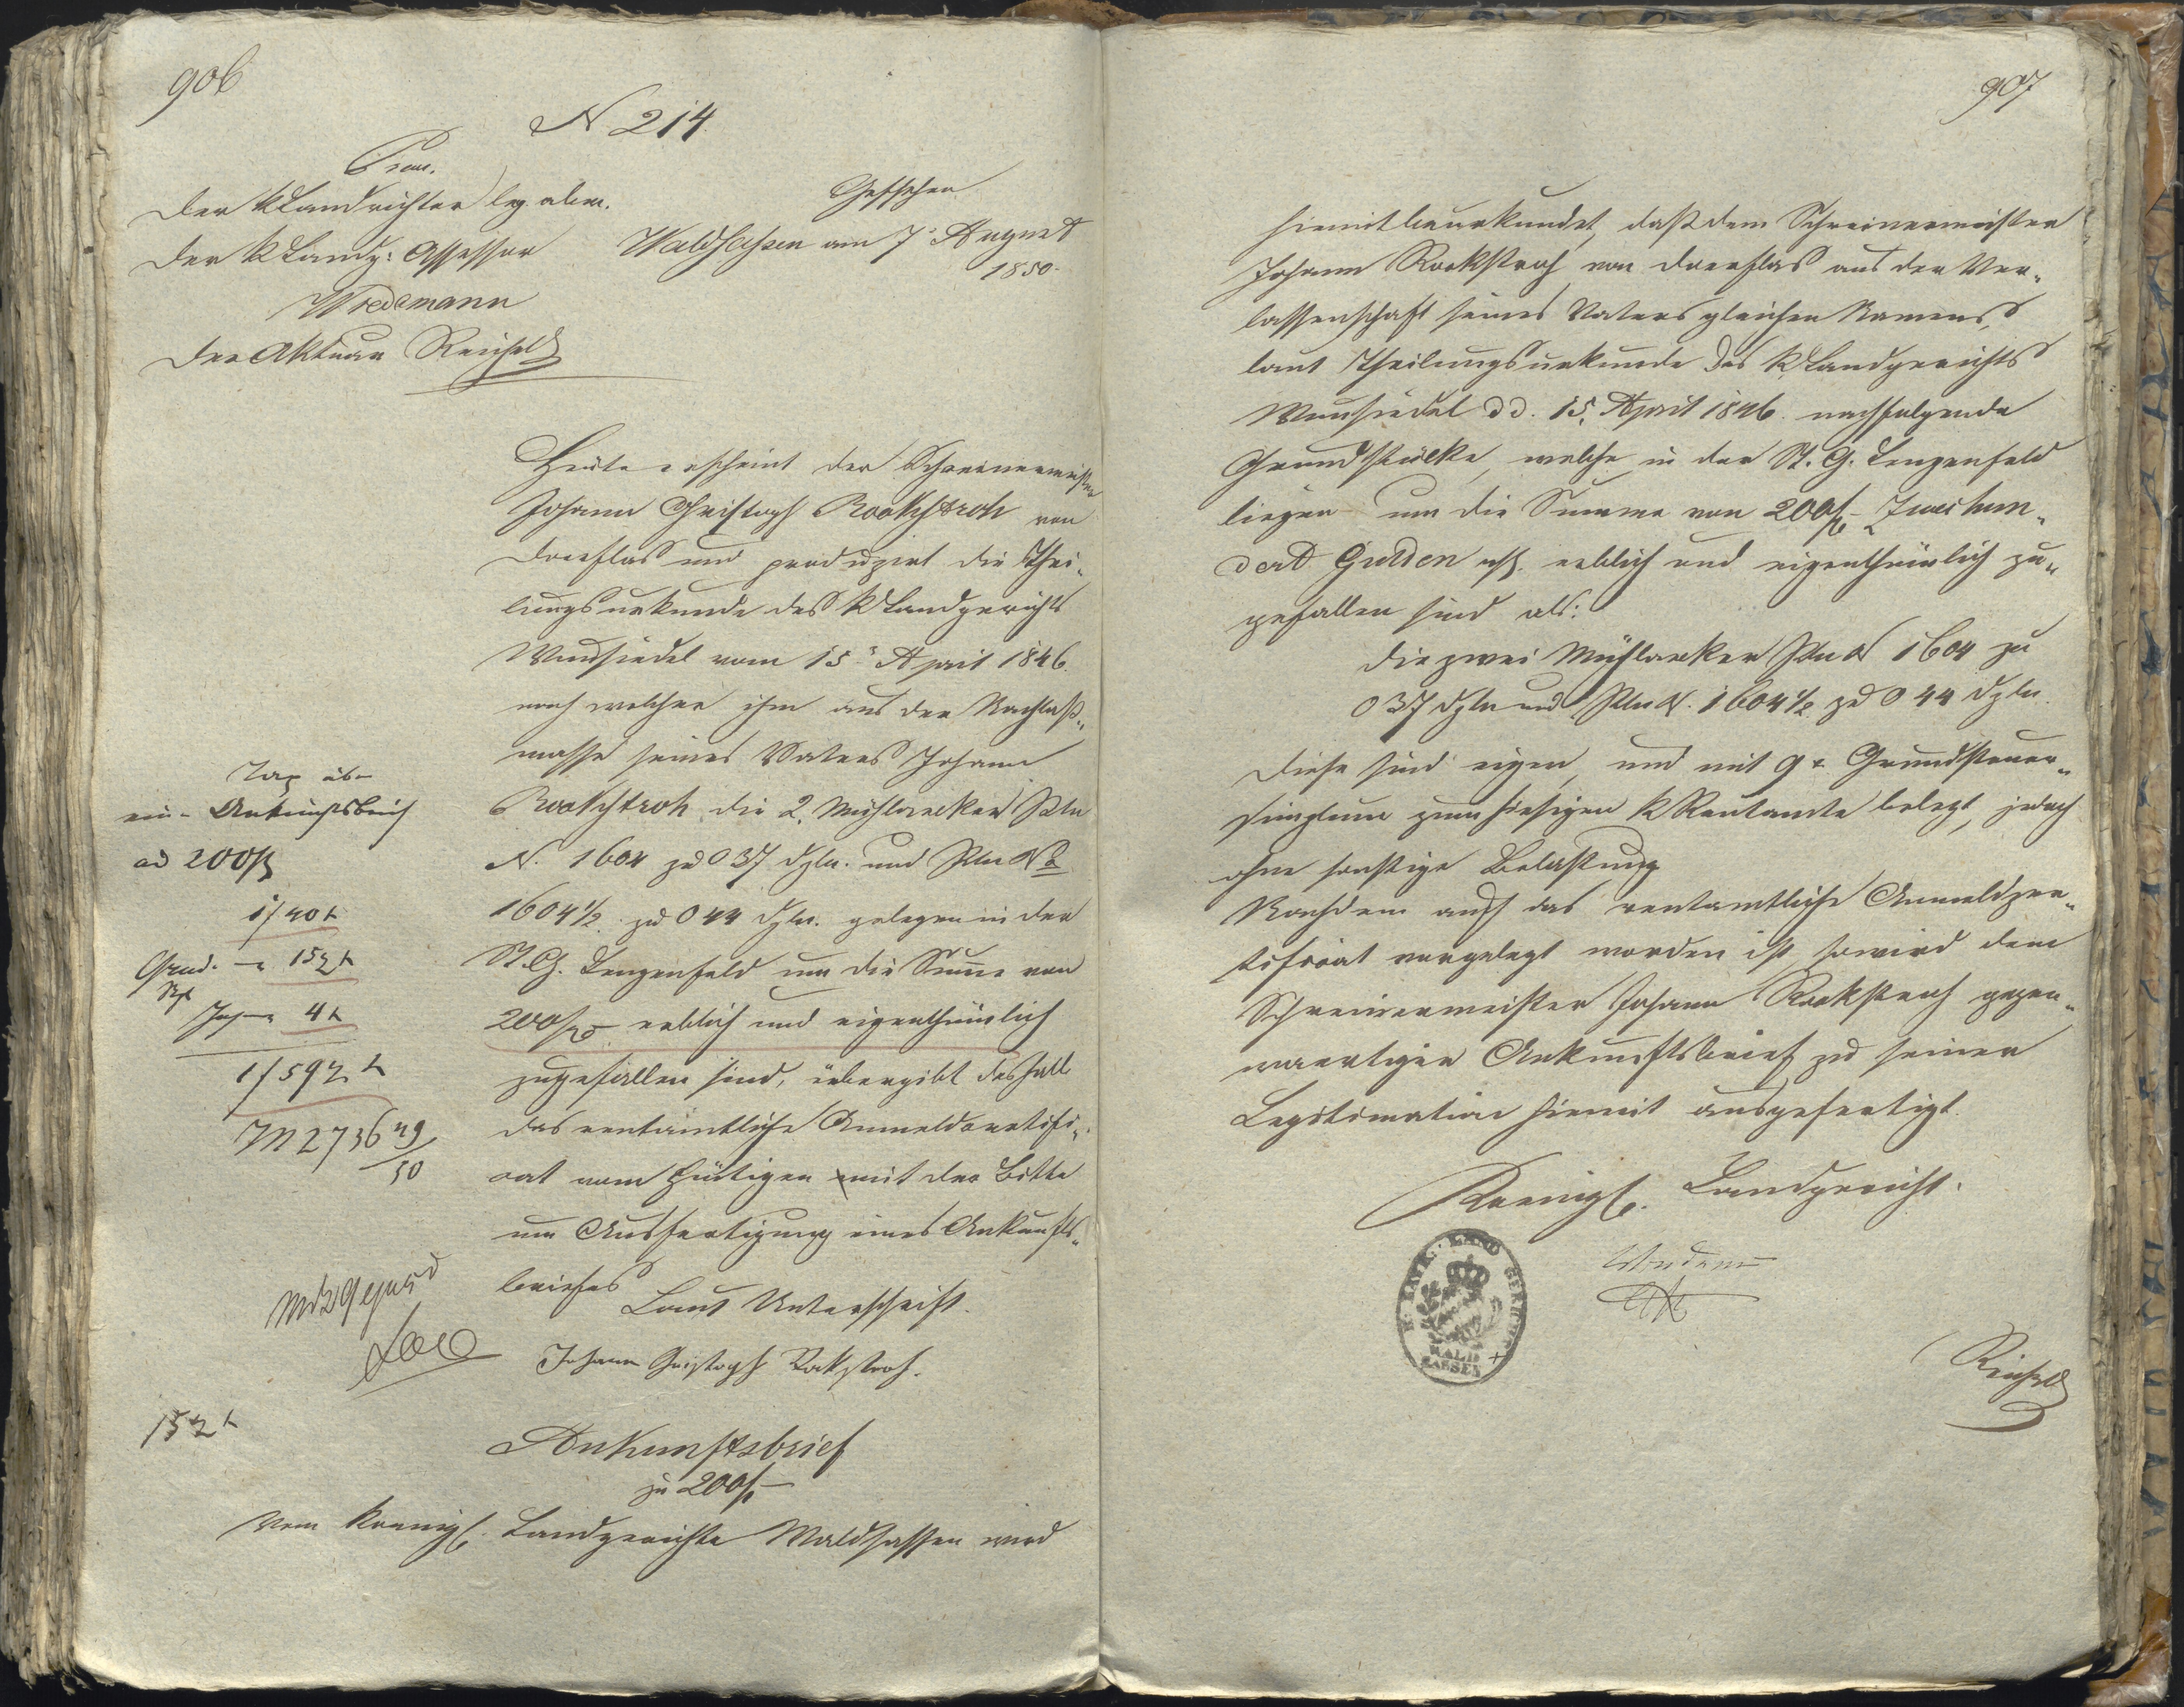 906
N 214.
Praes.
Der k Landrichter leg. abw.
Der k Landg: Assessor
Wiedemann
Der Aktuar Reichold
Geschehen
Waldsassen am 7ᵗ August
1850.
Heute erscheint der Schreinermeister
Johann Christoph Rockstroh von
Doerflas und produzirt die Thei-
lungsurkunde des k Landgerichts
Wunsiedel vom 15ᵗ April 1846.
nach welcher ihm aus der Nachlaß-
masse seines Vaters Johann
Rockstroh die 2 Mühlaecker Pln
N. 1604 zu 0 37 Dzln. und Pln No
1604½ zu 0 44 Dzln. gelegen in der
St. G. Lengenfeld um die Summe von
200 f erblich und eigenthümlich
zugefallen sind, übergibt deshalb
das rentamtliche Anmeldzertifi-
cat vom Heutigen mit der Bitte
um Ausfertigung eines Ankunfts-
briefes
Laut Unterschrift.
Johann Christoph Rokstroh.
Tax
ein Ankunftsbrief
ad 200 f
1 f 40 x
Grad. 15 x
4 x
1 f 59
M 2736 49/50
15
Ankunftsbrief
zu 200 f
Vom koenigl. Landgerichte Waldsassen wird
907
hiemit beurkundet, daß dem Schreinermeister
Johann Rockstroh von Doerflas aus der Ver-
lassenschaft seines Vaters gleichen Namens,
laut Theilungsurkunde des k Landgerichts
Wunsiedel dd. 15. April 1846. nachfolgende
Grundstücke, welche in der St. G. Lengenfeld
liegen um die Summe von 200 f Zweihun-
dert Gulden erblich und eigenthümlich zu-
gefallen sind als:
die zwei Mühlaecker Pln N 1604 zu
0 37 Dzln und Pln N. 1604½ zu 0 44 Dzln.
Diese sind eigen, und mit 9 x Grundsteuer-
simplum zum hiesigen k Rentamte belegt, jedoch
ohne sonstige Belastung
Nachdem auch das rentamtliche Anmeldzer-
tificat vorgelegt worden ist, so wird dem
Schreinermeister Johann Rockstroh gegen-
waertiger Ankunftsbrief zu seiner
Legitimation hiemit ausgefertigt.
Koenigl. Landgericht.
K. BAYR. LAND GERICHT
WALD
SASSEN
Reichold